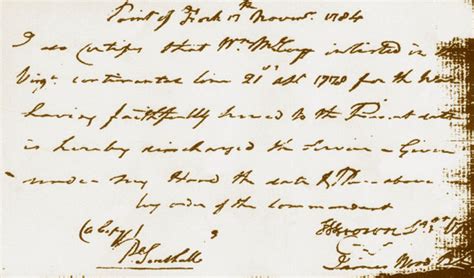 Point of Fork 17th Novemr. 1784
I do certify that Wm. McCoy inlisted in the
Virga. continental line 21st apl 1778 for the War
having faithfully served to the Present date
is hereby discharged the Service - Given
under my Hand the date & Place above
by order of the commandant
(a Copy)
Southall